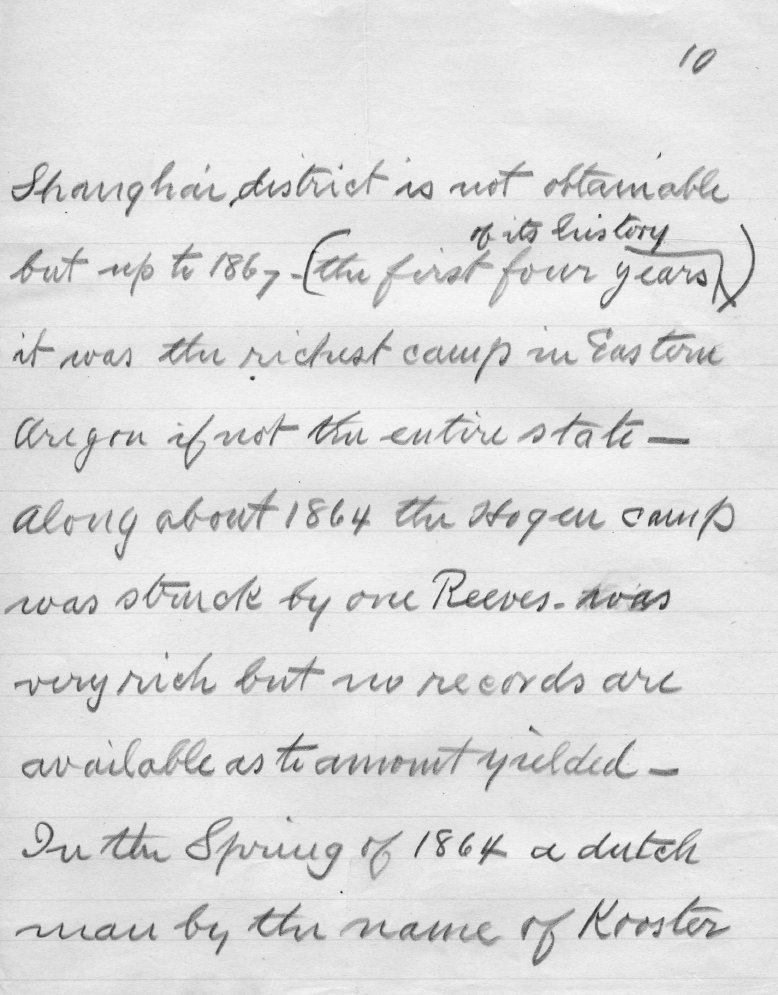 10
Shanghai district is not obtainable
of its history
but up to 1867 - (the first four years)
it was the richest camp in Eastern
Oregon if not the entire state —
Along about 1864 the Hogen camp
was struck by one Reeves - was
very rich but no records are
available as to amount yielded —
In the Spring of 1864 a dutch
man by the name of Kooster